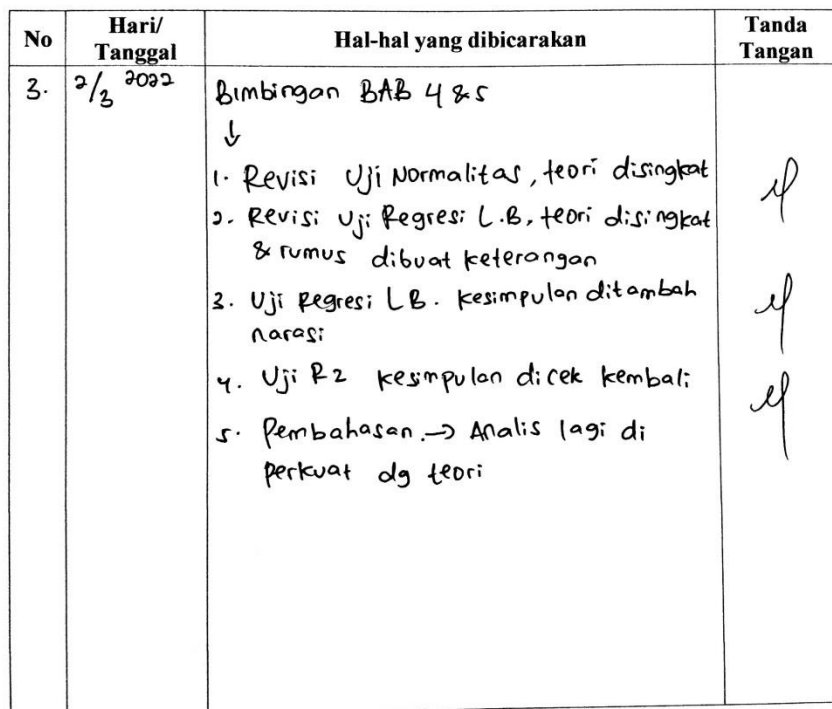 No
Hari/
Tanggal
Hal-hal yang dibicarakan
Tanda
Tangan
3.
2/3 2022
Bimbingan BAB 4 & 5
↓
1. Revisi Uji Normalitas, teori disingkat
2. Revisi Uji Regresi L.B, teori disingkat
& rumus dibuat keterangan
3. Uji Regresi LB. kesimpulan ditambah
narasi
4. Uji R2 kesimpulan dicek kembali
5. Pembahasan. → Analis lagi di
perkuat dg teori